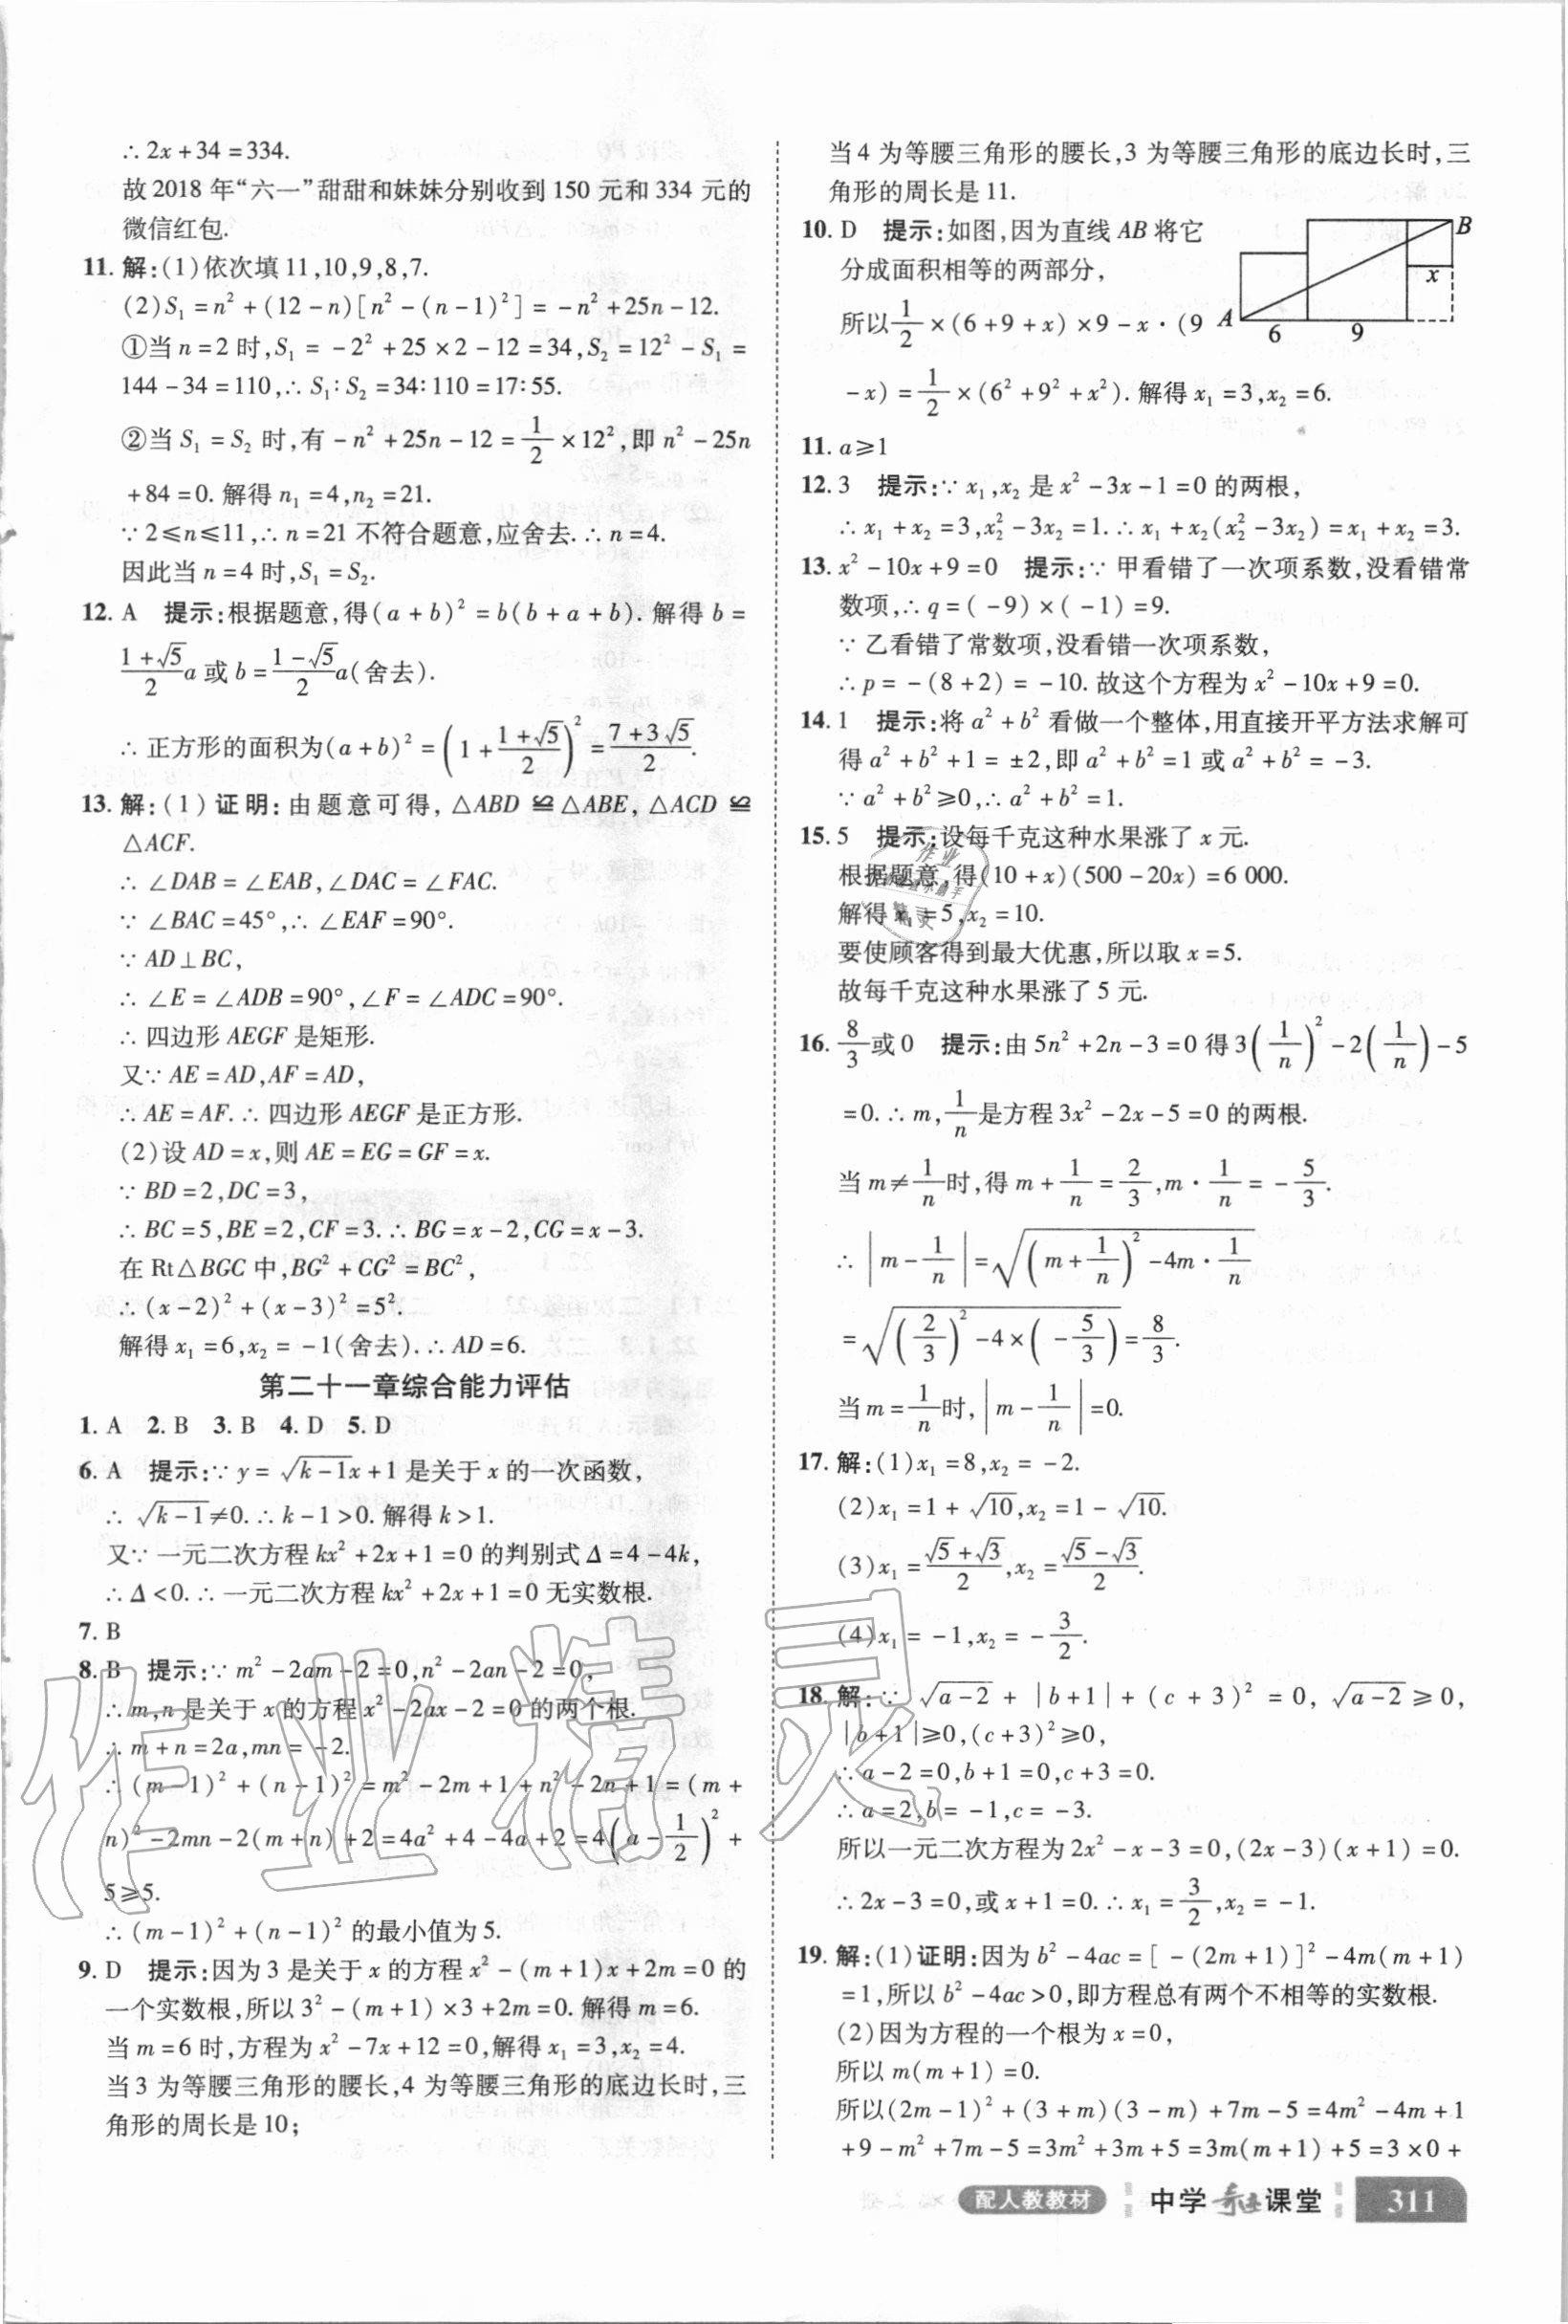 ∴ 2x+34=334.
故2018年“六一”甜甜和妹妹分别收到150元和334元的
微信红包.
11. 解:(1)依次填11,10,9,8,7.
(2)S₁=n²+(12-n)[n²-(n-1)²]=-n²+25n-12.
①当n=2时,S₁=-2²+25×2-12=34,S₂=12²-S₁=
144-34=110,∴S₁∶S₂=34∶110=17∶55.
②当S₁=S₂时,有-n²+25n-12=1/2×12²,即n²-25n
+84=0.解得n₁=4,n₂=21.
∵2⩽n⩽11,∴n=21不符合题意,应舍去.∴n=4.
因此当n=4时,S₁=S₂.
12. A 提示:根据题意,得(a+b)²=b(b+a+b).解得b=
(1+√5)/2 a或b=(1-√5)/2 a(舍去).
∴正方形的面积为(a+b)²=(1+(1+√5)/2)²=(7+3√5)/2.
13. 解:(1)证明:由题意可得,△ABD≌△ABE,△ACD≌
△ACF.
∴∠DAB=∠EAB,∠DAC=∠FAC.
∵∠BAC=45°,∴∠EAF=90°.
∵AD⊥BC,
∴∠E=∠ADB=90°,∠F=∠ADC=90°.
∴四边形AEGF是矩形.
又∵AE=AD,AF=AD,
∴AE=AF.∴四边形AEGF是正方形.
(2)设AD=x,则AE=EG=GF=x.
∵BD=2,DC=3,
∴BC=5,BE=2,CF=3.∴BG=x-2,CG=x-3.
在Rt△BGC中,BG²+CG²=BC²,
∴(x-2)²+(x-3)²=5².
解得x₁=6,x₂=-1(舍去).∴AD=6.
第二十一章综合能力评估
1. A 2. B 3. B 4. D 5. D
6. A 提示:∵y=√(k-1)x+1是关于x的一次函数,
∴√(k-1)≠0.∴k-1>0.解得k>1.
又∵一元二次方程kx²+2x+1=0的判别式Δ=4-4k,
∴Δ<0.∴一元二次方程kx²+2x+1=0无实数根.
7. B
8. B 提示:∵m²-2am-2=0,n²-2an-2=0,
∴m,n是关于x的方程x²-2ax-2=0的两个根.
∴m+n=2a,mn=-2.
∴(m-1)²+(n-1)²=m²-2m+1+n²-2n+1=(m+
n)²-2mn-2(m+n)+2=4a²+4-4a+2=4(a-1/2)²+
5⩾5.
∴(m-1)²+(n-1)²的最小值为5.
9. D 提示:因为3是关于x的方程x²-(m+1)x+2m=0的
一个实数根,所以3²-(m+1)×3+2m=0.解得m=6.
当m=6时,方程为x²-7x+12=0,解得x₁=3,x₂=4.
当3为等腰三角形的腰长,4为等腰三角形的底边长时,三
角形的周长是10;
当4为等腰三角形的腰长,3为等腰三角形的底边长时,三
角形的周长是11.
10. D 提示:如图,因为直线AB将它
分成面积相等的两部分,
所以1/2×(6+9+x)×9-x·(9
-x)=1/2×(6²+9²+x²).解得x₁=3,x₂=6.
B
x
A
6 9
11. a⩾1
12. 3 提示:∵x₁,x₂是x²-3x-1=0的两根,
∴x₁+x₂=3,x₂²-3x₂=1.∴x₁+x₂(x₂²-3x₂)=x₁+x₂=3.
13. x²-10x+9=0 提示:∵甲看错了一次项系数,没看错常
数项,∴q=(-9)×(-1)=9.
∵乙看错了常数项,没看错一次项系数,
∴p=-(8+2)=-10.故这个方程为x²-10x+9=0.
14. 1 提示:将a²+b²看做一个整体,用直接开平方法求解可
得a²+b²+1=±2,即a²+b²=1或a²+b²=-3.
∵a²+b²⩾0,∴a²+b²=1.
15. 5 提示:设每千克这种水果涨了x元.
根据题意,得(10+x)(500-20x)=6 000.
解得x₁=5,x₂=10.
要使顾客得到最大优惠,所以取x=5.
故每千克这种水果涨了5元.
16. 8/3或0 提示:由5n²+2n-3=0得3(1/n)²-2(1/n)-5
=0.∴m,1/n是方程3x²-2x-5=0的两根.
当m≠1/n时,得m+1/n=2/3,m·1/n=-5/3.
∴|m-1/n|=√((m+1/n)²-4m·1/n)
=√((2/3)²-4×(-5/3))=8/3.
当m=1/n时,|m-1/n|=0.
17. 解:(1)x₁=8,x₂=-2.
(2)x₁=1+√10,x₂=1-√10.
(3)x₁=(√5+√3)/2,x₂=(√5-√3)/2.
(4)x₁=-1,x₂=-3/2.
18. 解:∵√(a-2)+|b+1|+(c+3)²=0,√(a-2)⩾0,
|b+1|⩾0,(c+3)²⩾0,
∴a-2=0,b+1=0,c+3=0.
∴a=2,b=-1,c=-3.
所以一元二次方程为2x²-x-3=0,(2x-3)(x+1)=0.
∴2x-3=0,或x+1=0.∴x₁=3/2,x₂=-1.
19. 解:(1)证明:因为b²-4ac=[-(2m+1)]²-4m(m+1)
=1,所以b²-4ac>0,即方程总有两个不相等的实数根.
(2)因为方程的一个根为x=0,
所以m(m+1)=0.
所以(2m-1)²+(3+m)(3-m)+7m-5=4m²-4m+1
+9-m²+7m-5=3m²+3m+5=3m(m+1)+5=3×0+
作业精灵
配人教教材 中学奇迹课堂 311